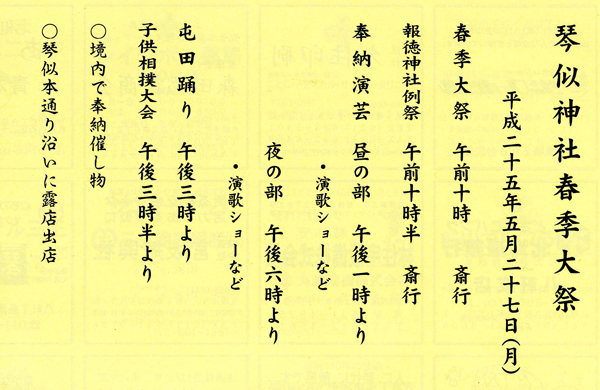 琴似神社春季大祭
平成二十五年五月二十七日(月)
春季大祭 午前十時 斎行
報徳神社例祭 午前十時半 斎行
奉納演芸 昼の部 午後一時より
・演歌ショーなど
夜の部 午後六時より
・演歌ショーなど
屯田踊り 午後三時より
子供相撲大会 午後三時半より
〇境内で奉納催し物
〇琴似本通り沿いに露店出店